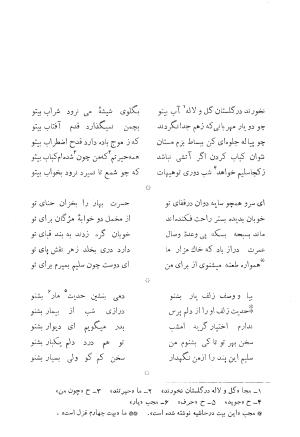 نخورند در گلستان گل و لاله آب بیتو    بگلوی شیشهٔ می نرود شراب بیتو
چو دو یار مهربانی که زهم جدا نگردند    بچمن نمیگذارد قدم آفتاب بیتو
چو پیاله جلوه‌ای کن بساط بزم مستان    که ز موج باده دارد قدح اضطراب بیتو
شوان کباب کردن اگر آتشی نباشد    همه حیرتم که من چون شده‌ام کباب بیتو
ز کجا سلیم خواهد شب دوری تو هیهات    که چو شمع تا نمیرد نرود بخواب بیتو
ای سرو همچو سایه دوان در قفای تو    حسرت بهار را بخزان حنای تو
خوبان بدیده بستر راحت فکنده‌اند    از مخمل دو خوابهٔ مژگان برای تو
ماند بسبحه بی وعدهٔ وصال    خوبان گره زدند به بند قبای تو
عمرت دراز باد که خاک مزار ما    دری بخلد زهر نقش پای تو
همواره طعنه میشنوی از برای من    ای دوست چون سلیم بمیرم برای تو
بیا و وصف زلف یار بشنو    دمی بنشین حدیث مار بشنو
حدیث زلف او را از دلم پرس    درازی شب از بیمار بشنو
ندارم اختیار گریه امشب    بدر میگویم ای دیوار بشنو
سخن بهر تو تا کی بشنوم من    تو هم درد دلم یکبار بشنو
سخن این بنده را ازمن نگهدار    سخن کم گو ولی بسیار بشنو
۱ـ مجا «گل و لاله در گلستان نخورند»    ۲ـ ما «حیرتند»    ۳ـ ح «چون من»
۴ـ ح «جوید»    ۵ـ ح «حرف»    ۶ـ مجب «یار»
* مجب «این بیت در حاشیه نوشته شده است».    ** ما «بیت چهارم غزل است».